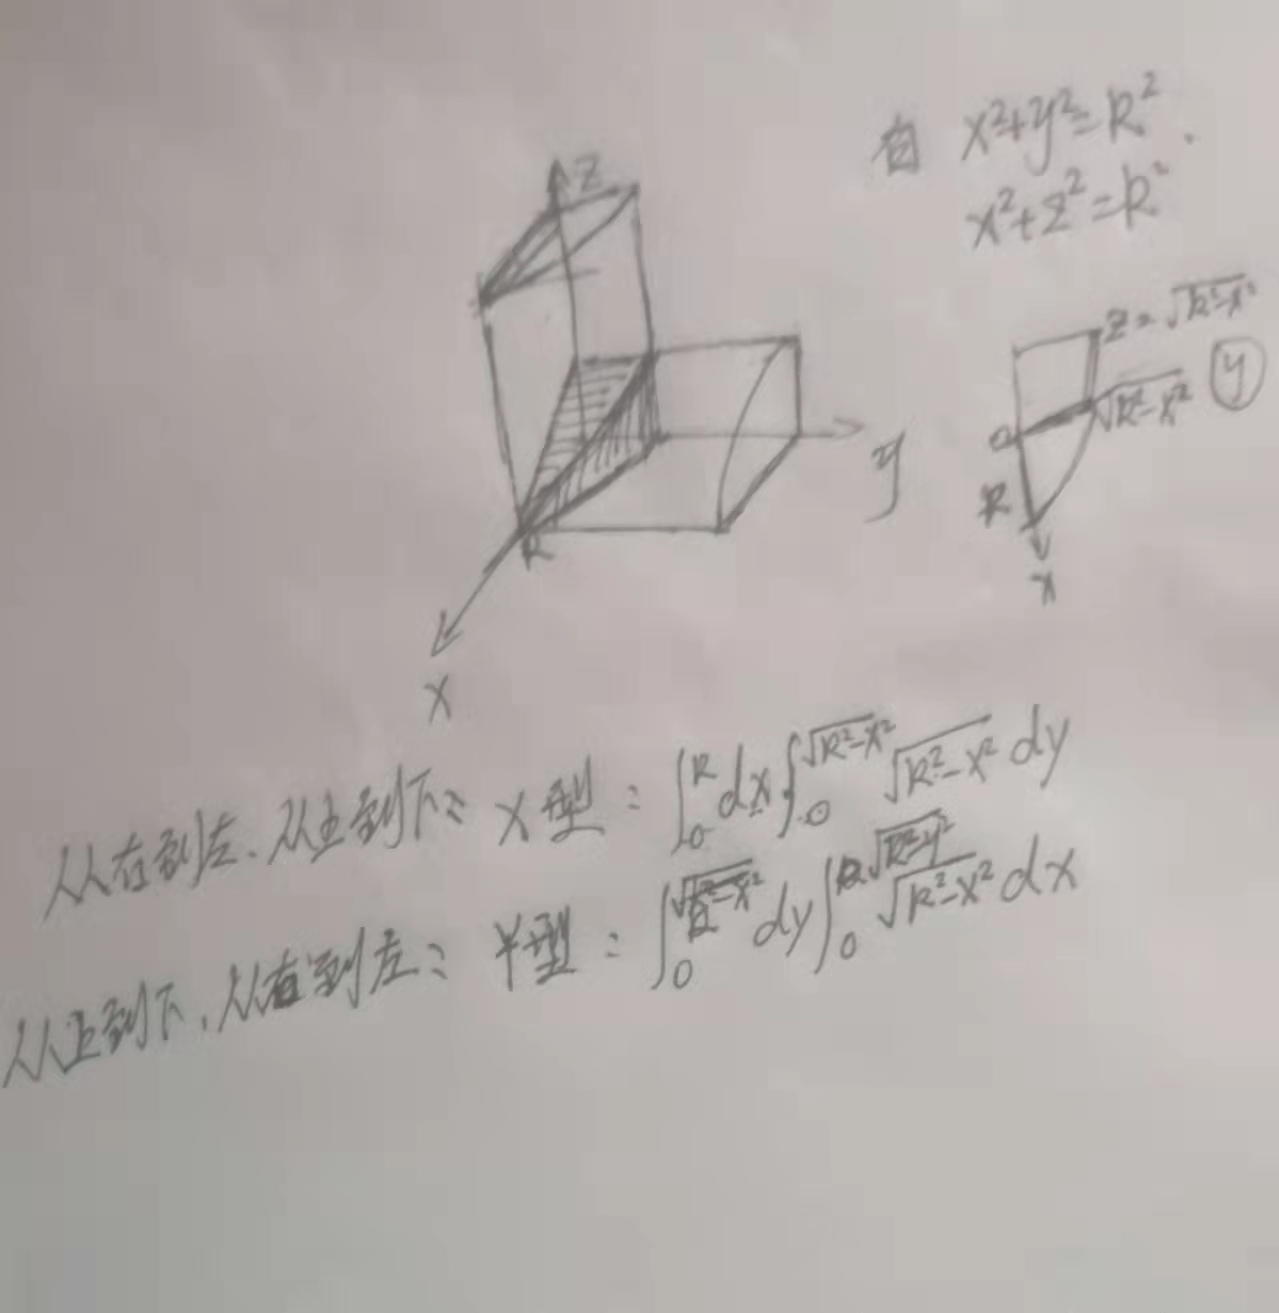 由 x²+y²=R².
x²+z²=R²
z
z=√R²-x²
√R²-x² y
o
y
R
R
x
x
从右到左、从上到下: X型: ∫₀ᴿ dx ∫₀^√R²-x² √R²-x² dy
从上到下,从右到左: Y型: ∫₀^√R²-x² dy ∫₀^√R²-y² √R²-x² dx